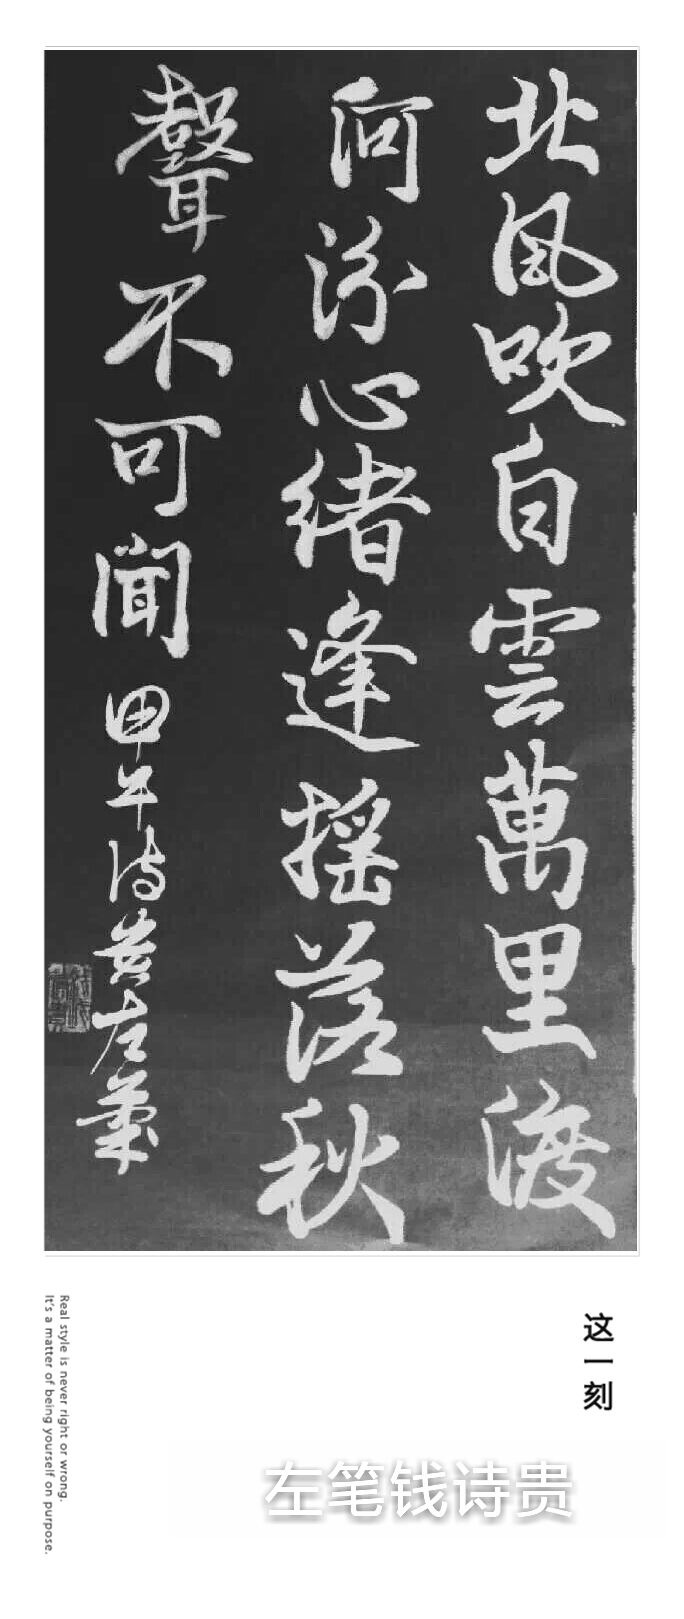 北風吹白雲萬里渡
河汾心緒逢摇落秋
聲不可聞
甲午诗贵左筆
这一刻
左笔钱诗贵
Real style is never right or wrong.
It's a matter of being yourself on purpose.